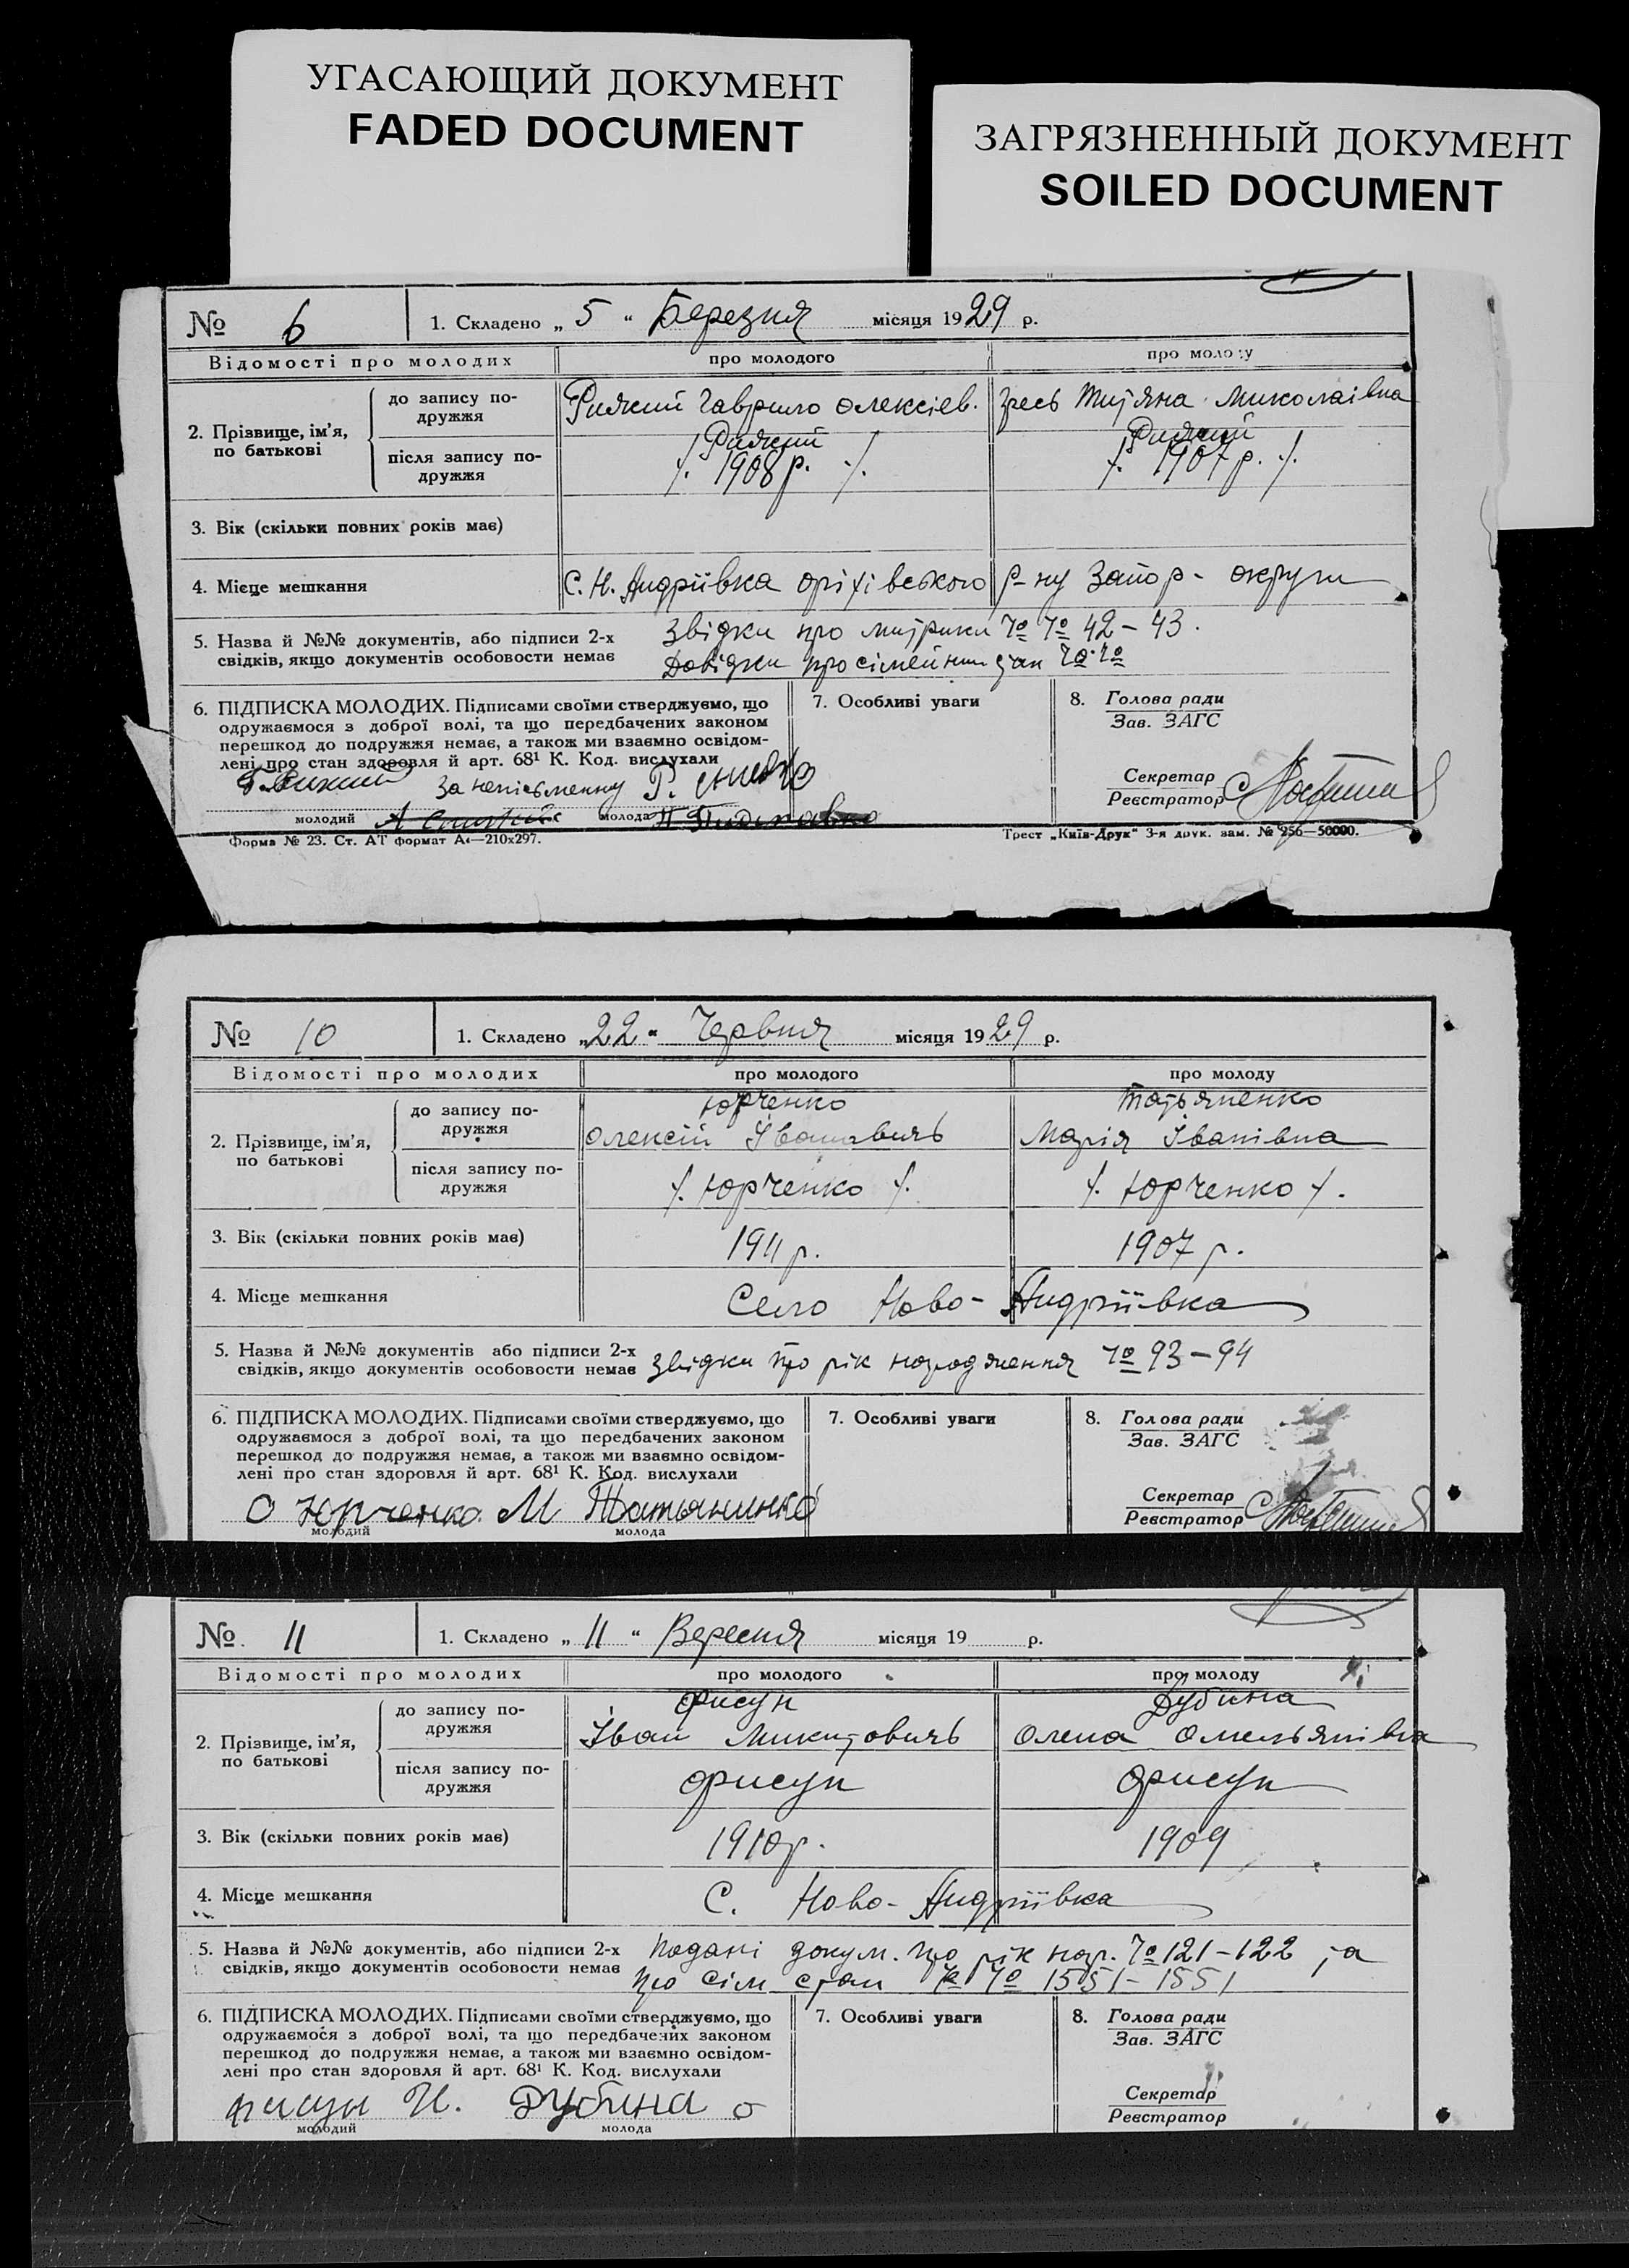 УГАСАЮЩИЙ ДОКУМЕНТ
FADED DOCUMENT
ЗАГРЯЗНЕННЫЙ ДОКУМЕНТ
SOILED DOCUMENT
№ 6 1. Складено „ 5 “ Березня місяця 1929 р.
Відомості про молодих про молодого про молоду
2. Прізвище, ім'я, по батькові
до запису по-
дружжя
Гаврило Олексіев. Титяна Миколаівна
після запису по-
дружжя
1908 р. 1907 р.
3. Вік (скільки повних років має)
4. Місце мешкання С. Н. Андріївка оріхівського р-ну Запор- округи
5. Назва й №№ документів, або підписи 2-х Звідки про митрики №№ 42-43.
свідків, якщо документів особовости немає Довідки про сімейний стан №№
6. ПІДПИСКА МОЛОДИХ. Підписами своїми стверджуємо, що
одружаємося з доброї волі, та що передбачених законом
перешкод до подружжя немає, а також ми взаємно освідом-
лені про стан здоровля й арт. 68¹ К. Код. вислухали
за неписьменну
молодий молода
7. Особливі уваги
8. Голова ради
Зав. ЗАГС
Секретар
Реєстратор
Форма № 23. Ст. АТ формат А4—210х297. Трест „Київ-Друк“ 3-я друк. зам. № 256—50000.
№ 10 1. Складено „22“ Червня місяця 1929 р.
Відомості про молодих про молодого про молоду
2. Прізвище, ім'я,
по батькові
до запису по-
дружжя
Юрченко Татьяненко
Олексій Івановичь Марія Іванівна
після запису по-
дружжя
Юрченко Юрченко
3. Вік (скільки повних років має) 1911 р. 1907 р.
4. Місце мешкання Село Ново-Андріївка
5. Назва й №№ документів або підписи 2-х
свідків, якщо документів особовости немає Звідки про рік народження № 93-94
6. ПІДПИСКА МОЛОДИХ. Підписами своїми стверджуємо, що
одружаємося з доброї волі, та що передбачених законом
перешкод до подружжя немає, а також ми взаємно освідом-
лені про стан здоровля й арт. 68¹ К. Код. вислухали
О Юрченко М Татьяниенко
молодий молода
7. Особливі уваги
8. Голова ради
Зав. ЗАГС
Секретар
Реєстратор
№ 11 1. Складено „ 11 “ Вересня місяця 19 р.
Відомості про молодих про молодого про молоду
2. Прізвище, ім'я,
по батькові
до запису по-
дружжя
Фисун Дубина
Іван Микитовичь Олена Омельянівна
після запису по-
дружжя
Фисун Фисун
3. Вік (скільки повних років має) 1910 р. 1909
4. Місце мешкання С. Ново-Андріївка
5. Назва й №№ документів, або підписи 2-х Подані докум. про рік нар. № 121-122 та
свідків, якщо документів особовости немає про сім стан №№ 1551-1551
6. ПІДПИСКА МОЛОДИХ. Підписами своїми стверджуємо, що
одружаємося з доброї волі, та що передбачених законом
перешкод до подружжя немає, а також ми взаємно освідом-
лені про стан здоровля й арт. 68¹ К. Код. вислухали
Фисун И. Дубина О
молодий молода
7. Особливі уваги
8. Голова ради
Зав. ЗАГС
Секретар
Реєстратор